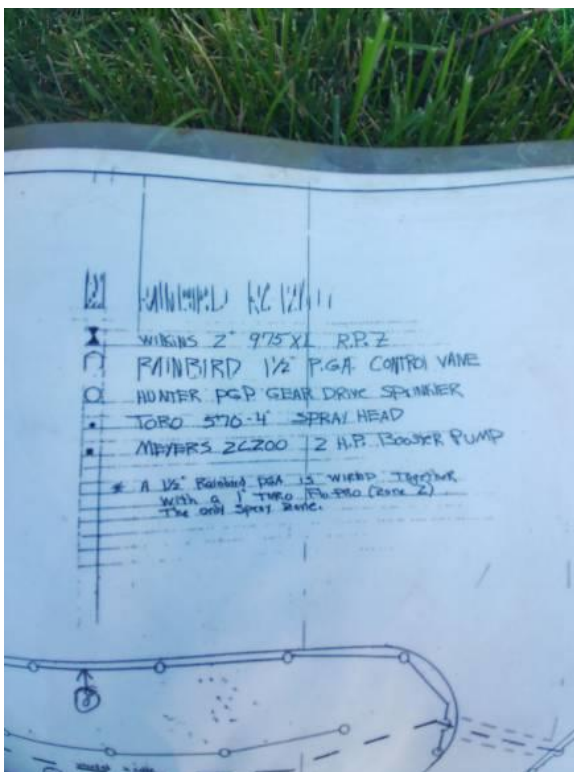 RAINBIRD
WILKINS 2" 975XL R.P.Z
RAINBIRD 1½" P.G.A. CONTROL VALVE
HUNTER PGP GEAR DRIVE SPRINKLER
TORO 570-4" SPRAY HEAD
MEYERS 2C200 2 H.P. BOOSTER PUMP
* A 1½" Rainbird PGA IS WIRED Together
With a 1" TORO Flo-PRO (Zone 2)
The only Spray Zone.